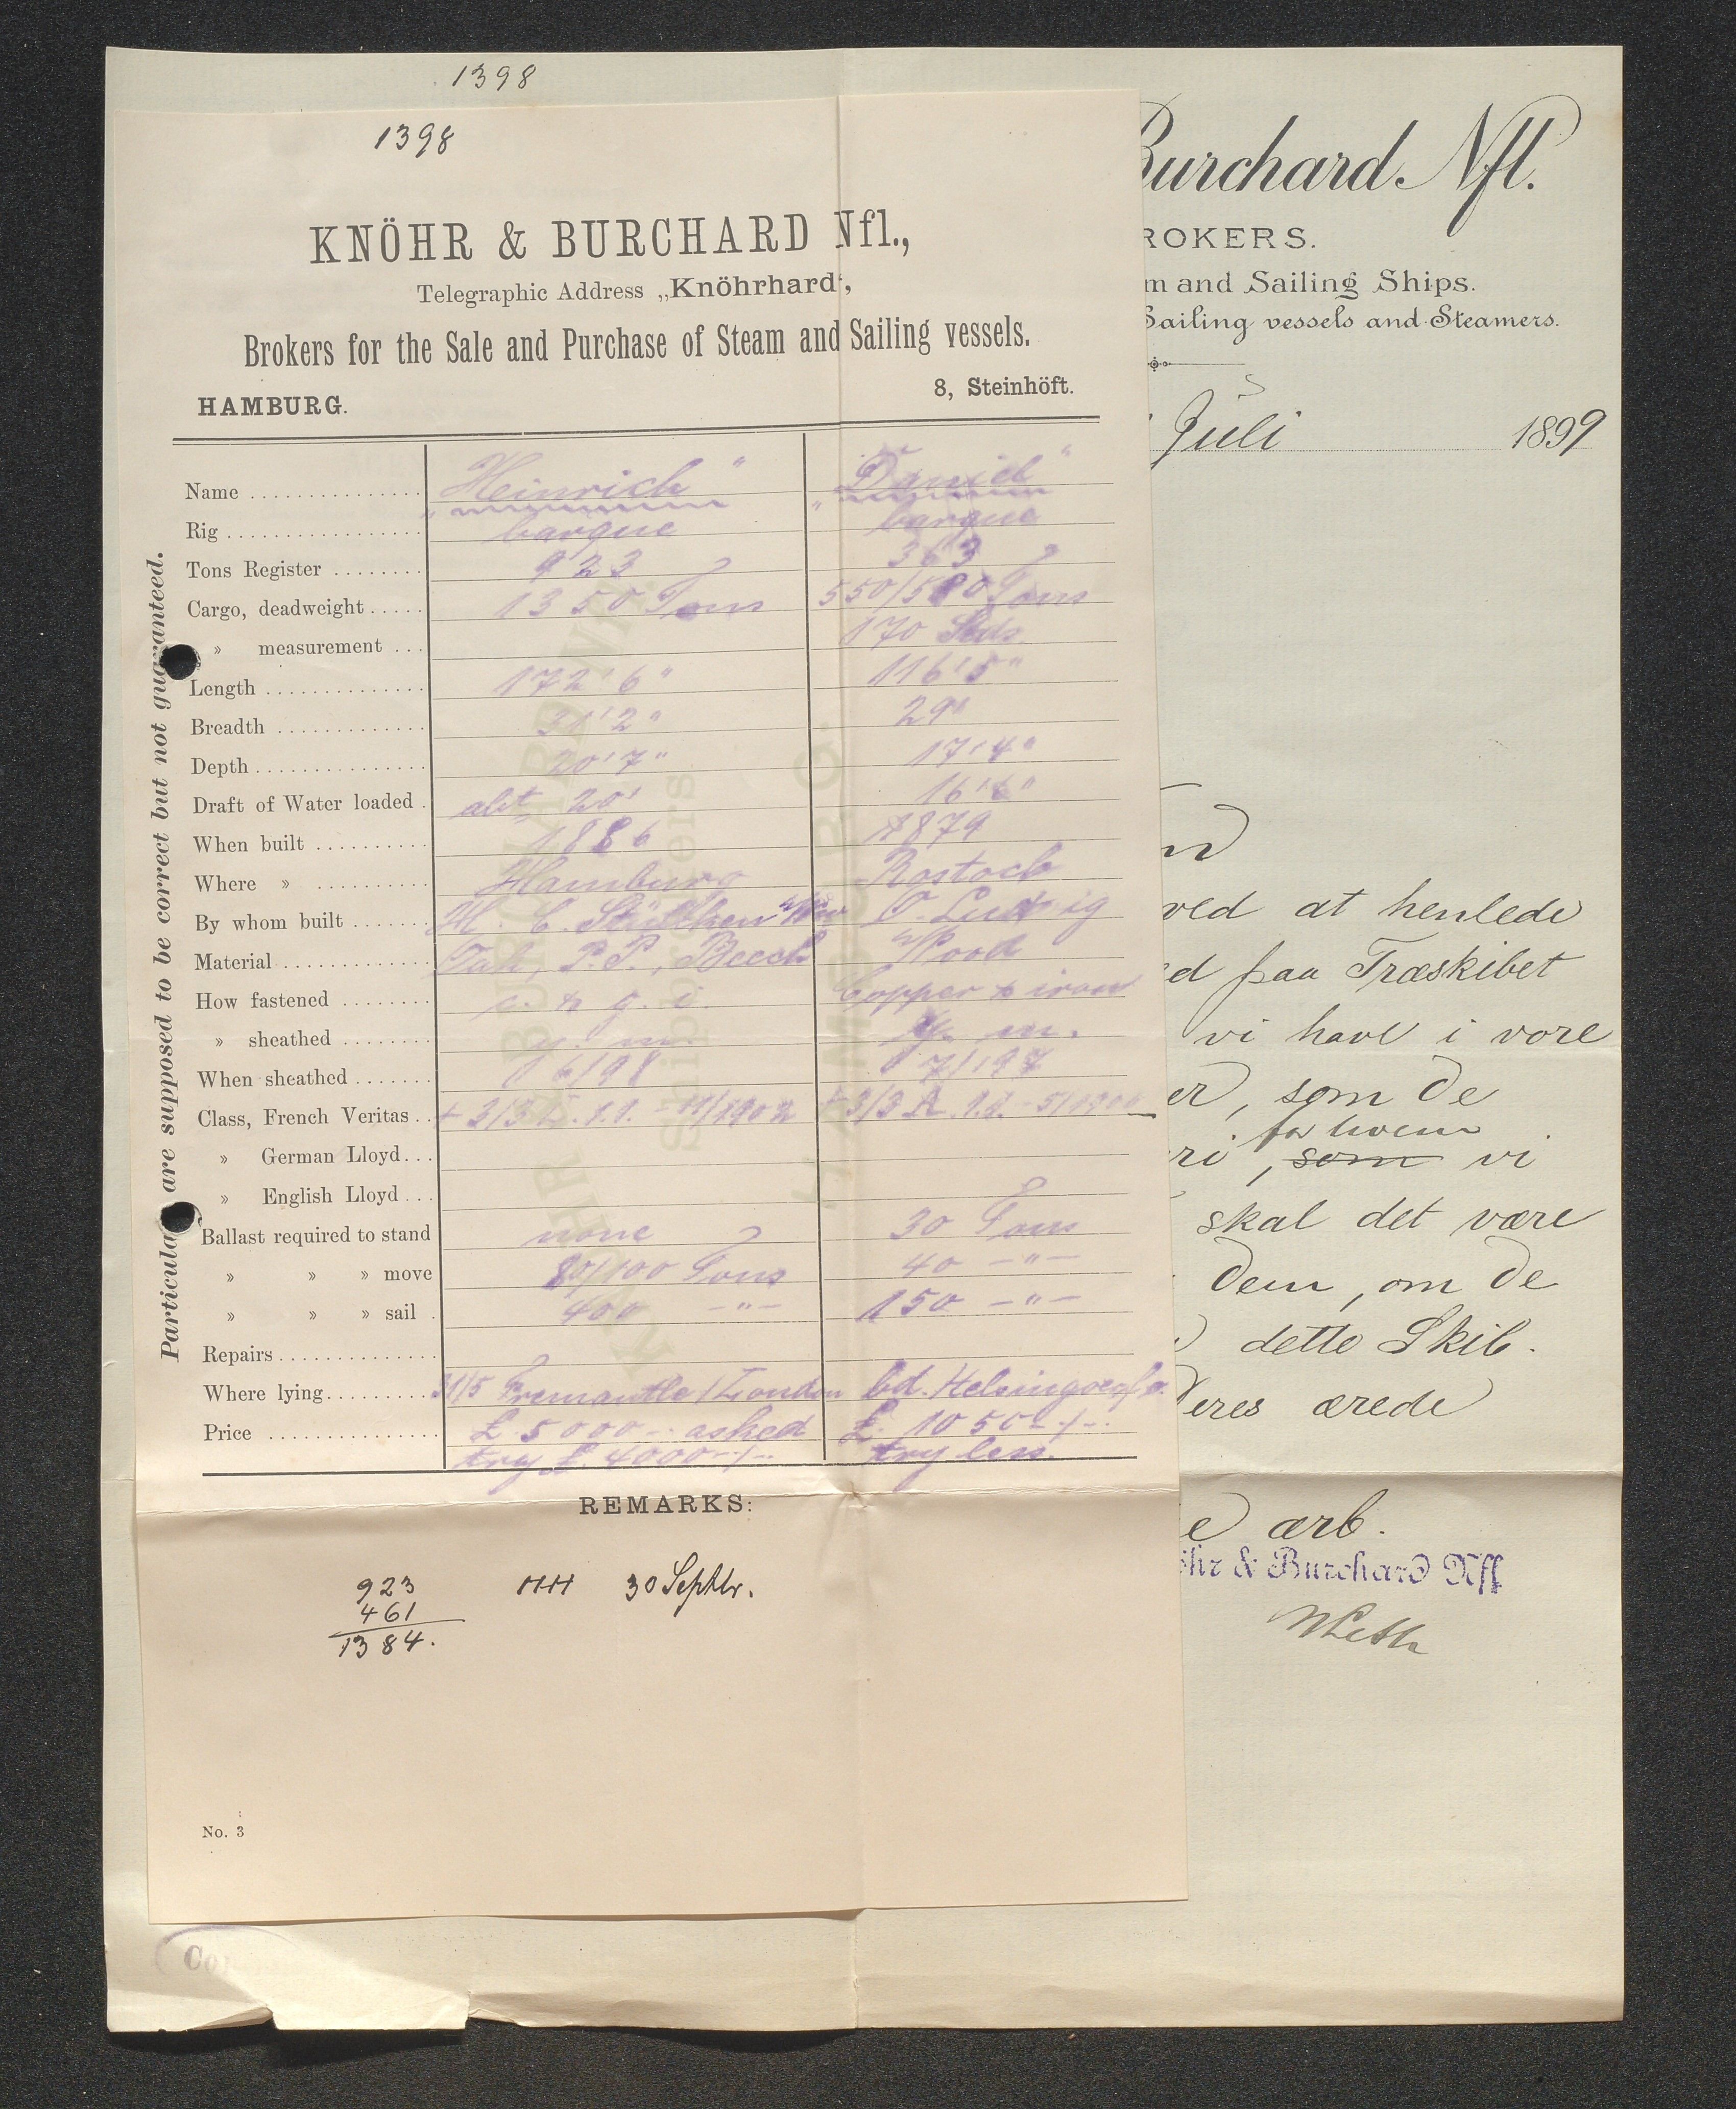 1398
1398
KNÖHR & BURCHARD Nfl.,
Telegraphic Address „Knöhrhard“,
Brokers for the Sale and Purchase of Steam and Sailing vessels.
HAMBURG. 8, Steinhöft.
Particulars are supposed to be correct but not guaranteed.
Name „Heinrich" „Daniel"
Rig barque barque
Tons Register 923 363
Cargo, deadweight 1350 Tons 550/580 Tons
» measurement 170 Stds
Length 172' 6" 116' 5"
Breadth 31' 2" 29'
Depth 20' 7" 17' 4"
Draft of Water loaded abt 20' 16'
When built 1886 1879
Where » Hamburg Rostock
By whom built H. C. Stülcken O. Ludwig
Material Oak, P.P., Beech Wood
How fastened c. & g. i. Copper & iron
» sheathed y. m. y. m.
When sheathed 6/98 7/197
Class, French Veritas + 3/3 L. 1.1. - 11/1902 + 3/3 A. 1.1. - 5/1900
» German Lloyd
» English Lloyd
Ballast required to stand none 30 Tons
» » » move 80/100 Tons 40 -"-
» » » sail 400 -"- 150 -"-
Repairs
Where lying 31/5 Fremantle / London bd. Helsingoer f. o.
Price £ 5000 -.- asked £ 1050-/-.
try £ 4000-/-. try less.
REMARKS:
923 HH 30 Septbr.
461
1384.
No. 3
Burchard Nfl.
ROKERS.
m and Sailing Ships.
Sailing vessels and Steamers.
Juli 1899
ved at henlede
ed paa Træskibet
vi have i vore
er, som De
for hvem
ri, som vi
skal det være
Dem, om De
dette Skib.
Deres ærede
e ærb.
öhr & Burchard Nfl
Co